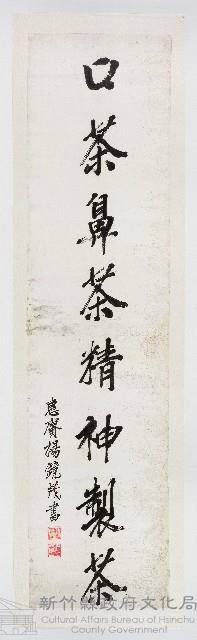 口茶鼻茶精神製茶
楊鏡茂書
新竹縣政府文化局
Cultural Affairs Bureau of Hsinchu
County Government